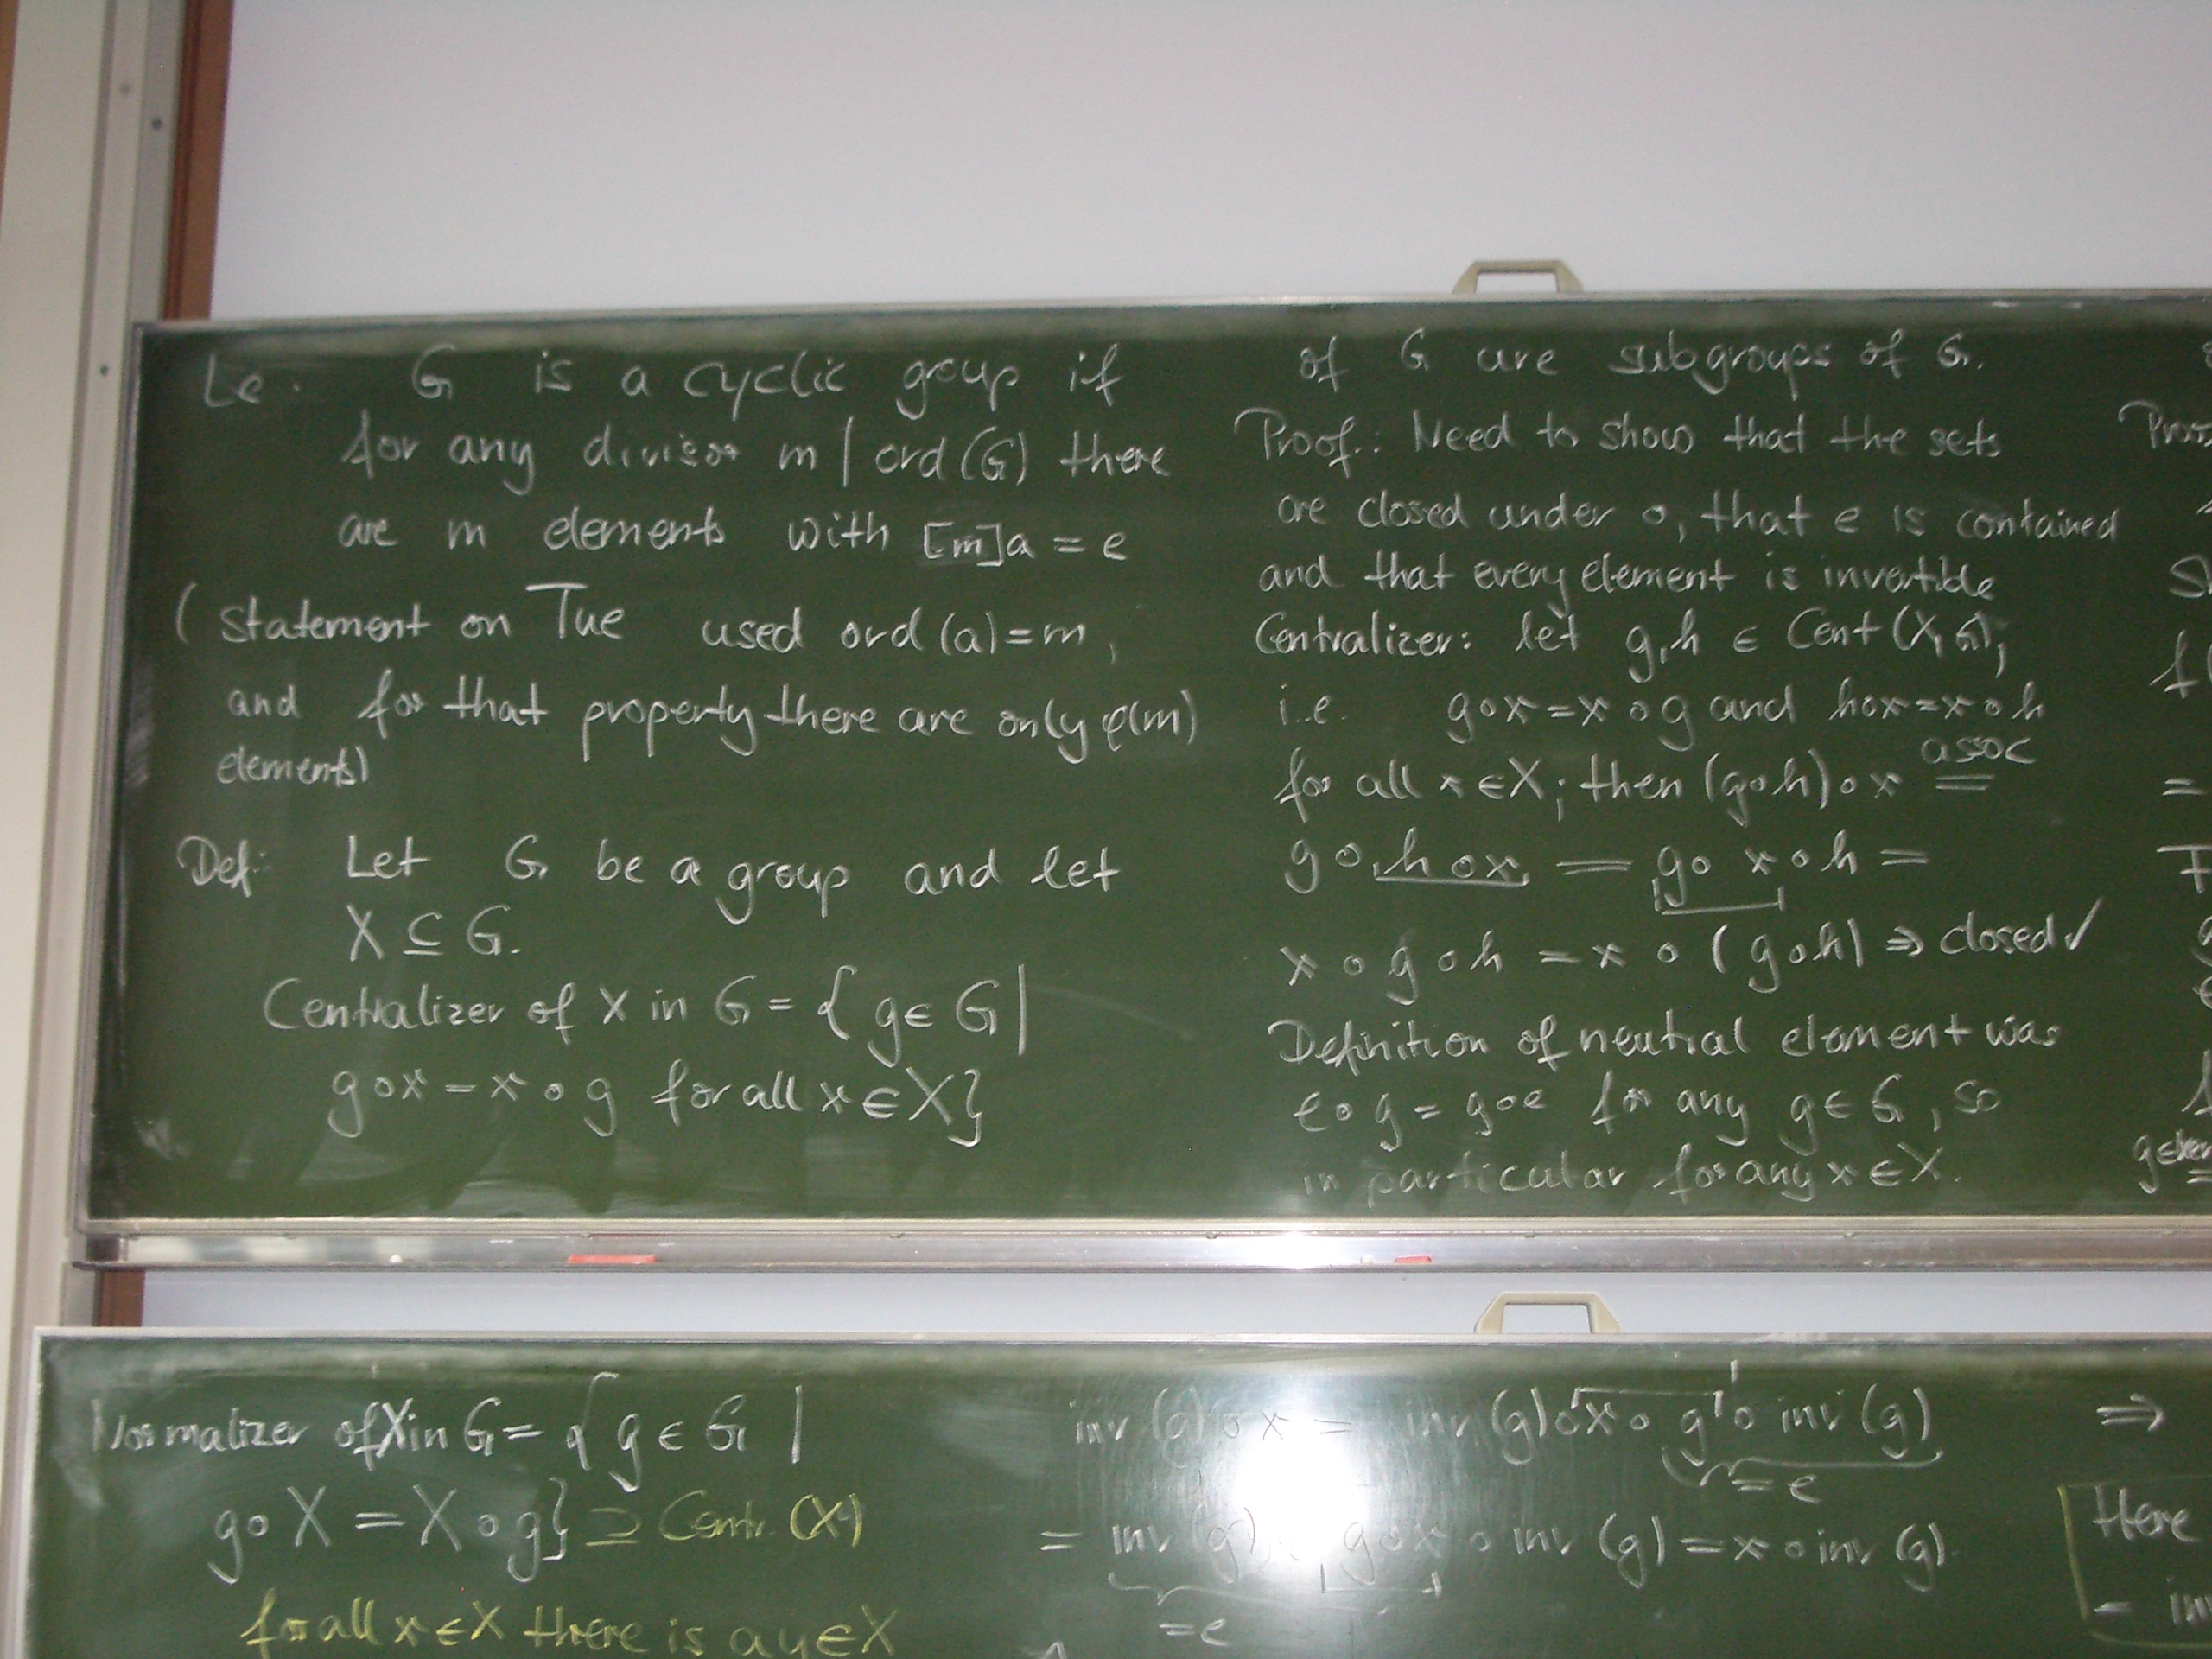 Le. G is a cyclic group if
for any divisor m | ord(G) there
are m elements with [m]a = e
( Statement on Tue used ord(a)=m,
and for that property there are only φ(m)
elements)
Def: Let G be a group and let
X ⊆ G.
Centralizer of X in G = { g∈G |
g∘x = x∘g for all x∈X}
of G are subgroups of G.
Proof: Need to show that the sets
are closed under ∘, that e is contained
and that every element is invertible
Centralizer: let g,h ∈ Cent(X,G);
i.e. g∘x=x∘g and h∘x=x∘h
for all x∈X; then (g∘h)∘x =
assoc
g∘h∘x = g∘x∘h =
x∘g∘h = x∘(g∘h) ⇒ closed ✓
Definition of neutral element was
e∘g = g∘e for any g∈G, so
in particular for any x∈X.
Normalizer of X in G = { g∈G |
g∘X = X∘g} ⊇ Centr.(X)
for all x∈X there is a y∈X
inv(g)∘x = inv(g)∘x∘g∘inv(g)
= e
= inv(g)∘g∘x∘inv(g) = x∘inv(g).
= e
⇒
Here